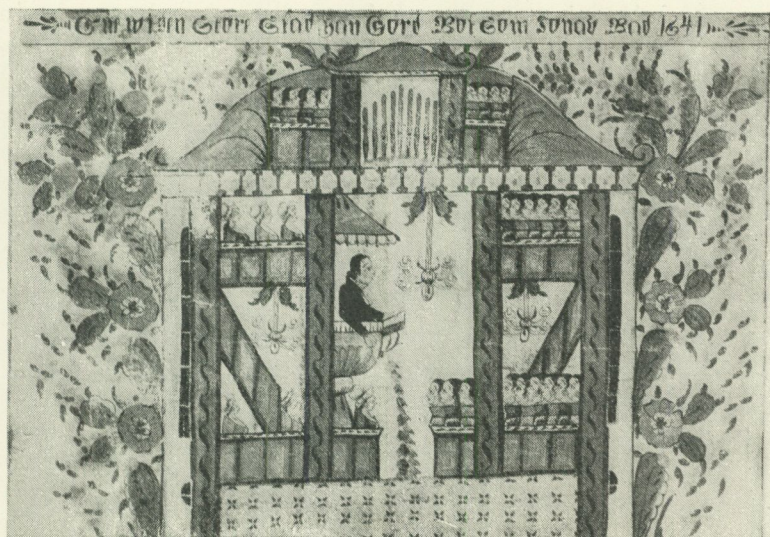 En wiken Stort Stad han Gord Bot Som Jonas Bad 1841